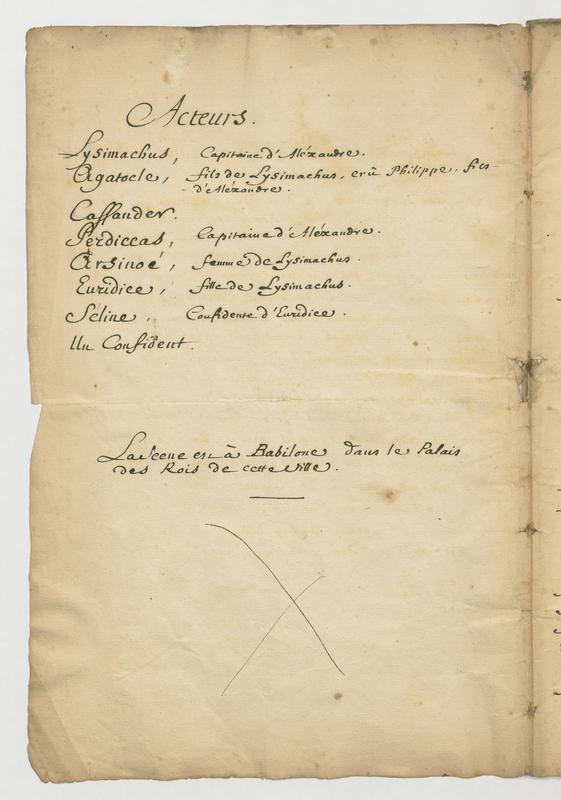 Acteurs.
Lysimachus, Capitaine d'Aléxandre.
Agatocle, fils de Lysimachus, crû Philippe, fils
d'Aléxandre.
Cassander.
Perdiccas, Capitaine d'Aléxandre.
Arsinoé, femme de Lysimachus.
Euridice, fille de Lysimachus.
Séline, Confidente d'Euridice.
Un Confident.
La Scene est à Babilone dans le Palais
des Rois de cette Ville.